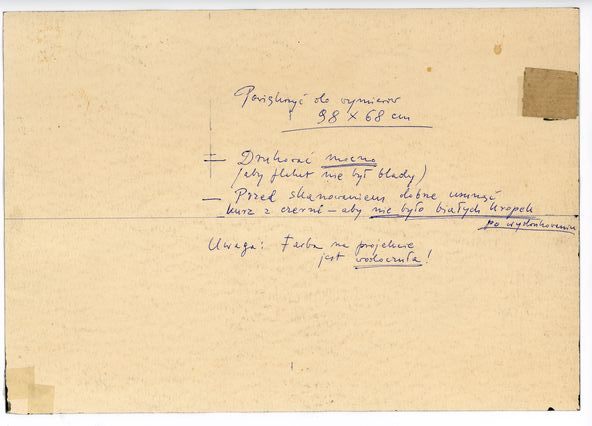 Powiększyć do wymiarów
98 x 68 cm
— Drukować mocno
(aby plakat nie był blady)
— Przed skanowaniem dobrze usunąć
kurz z czerni – aby nie było białych kropek
po wydrukowaniu
Uwaga: Farba na projekcie
jest wodoczuła!